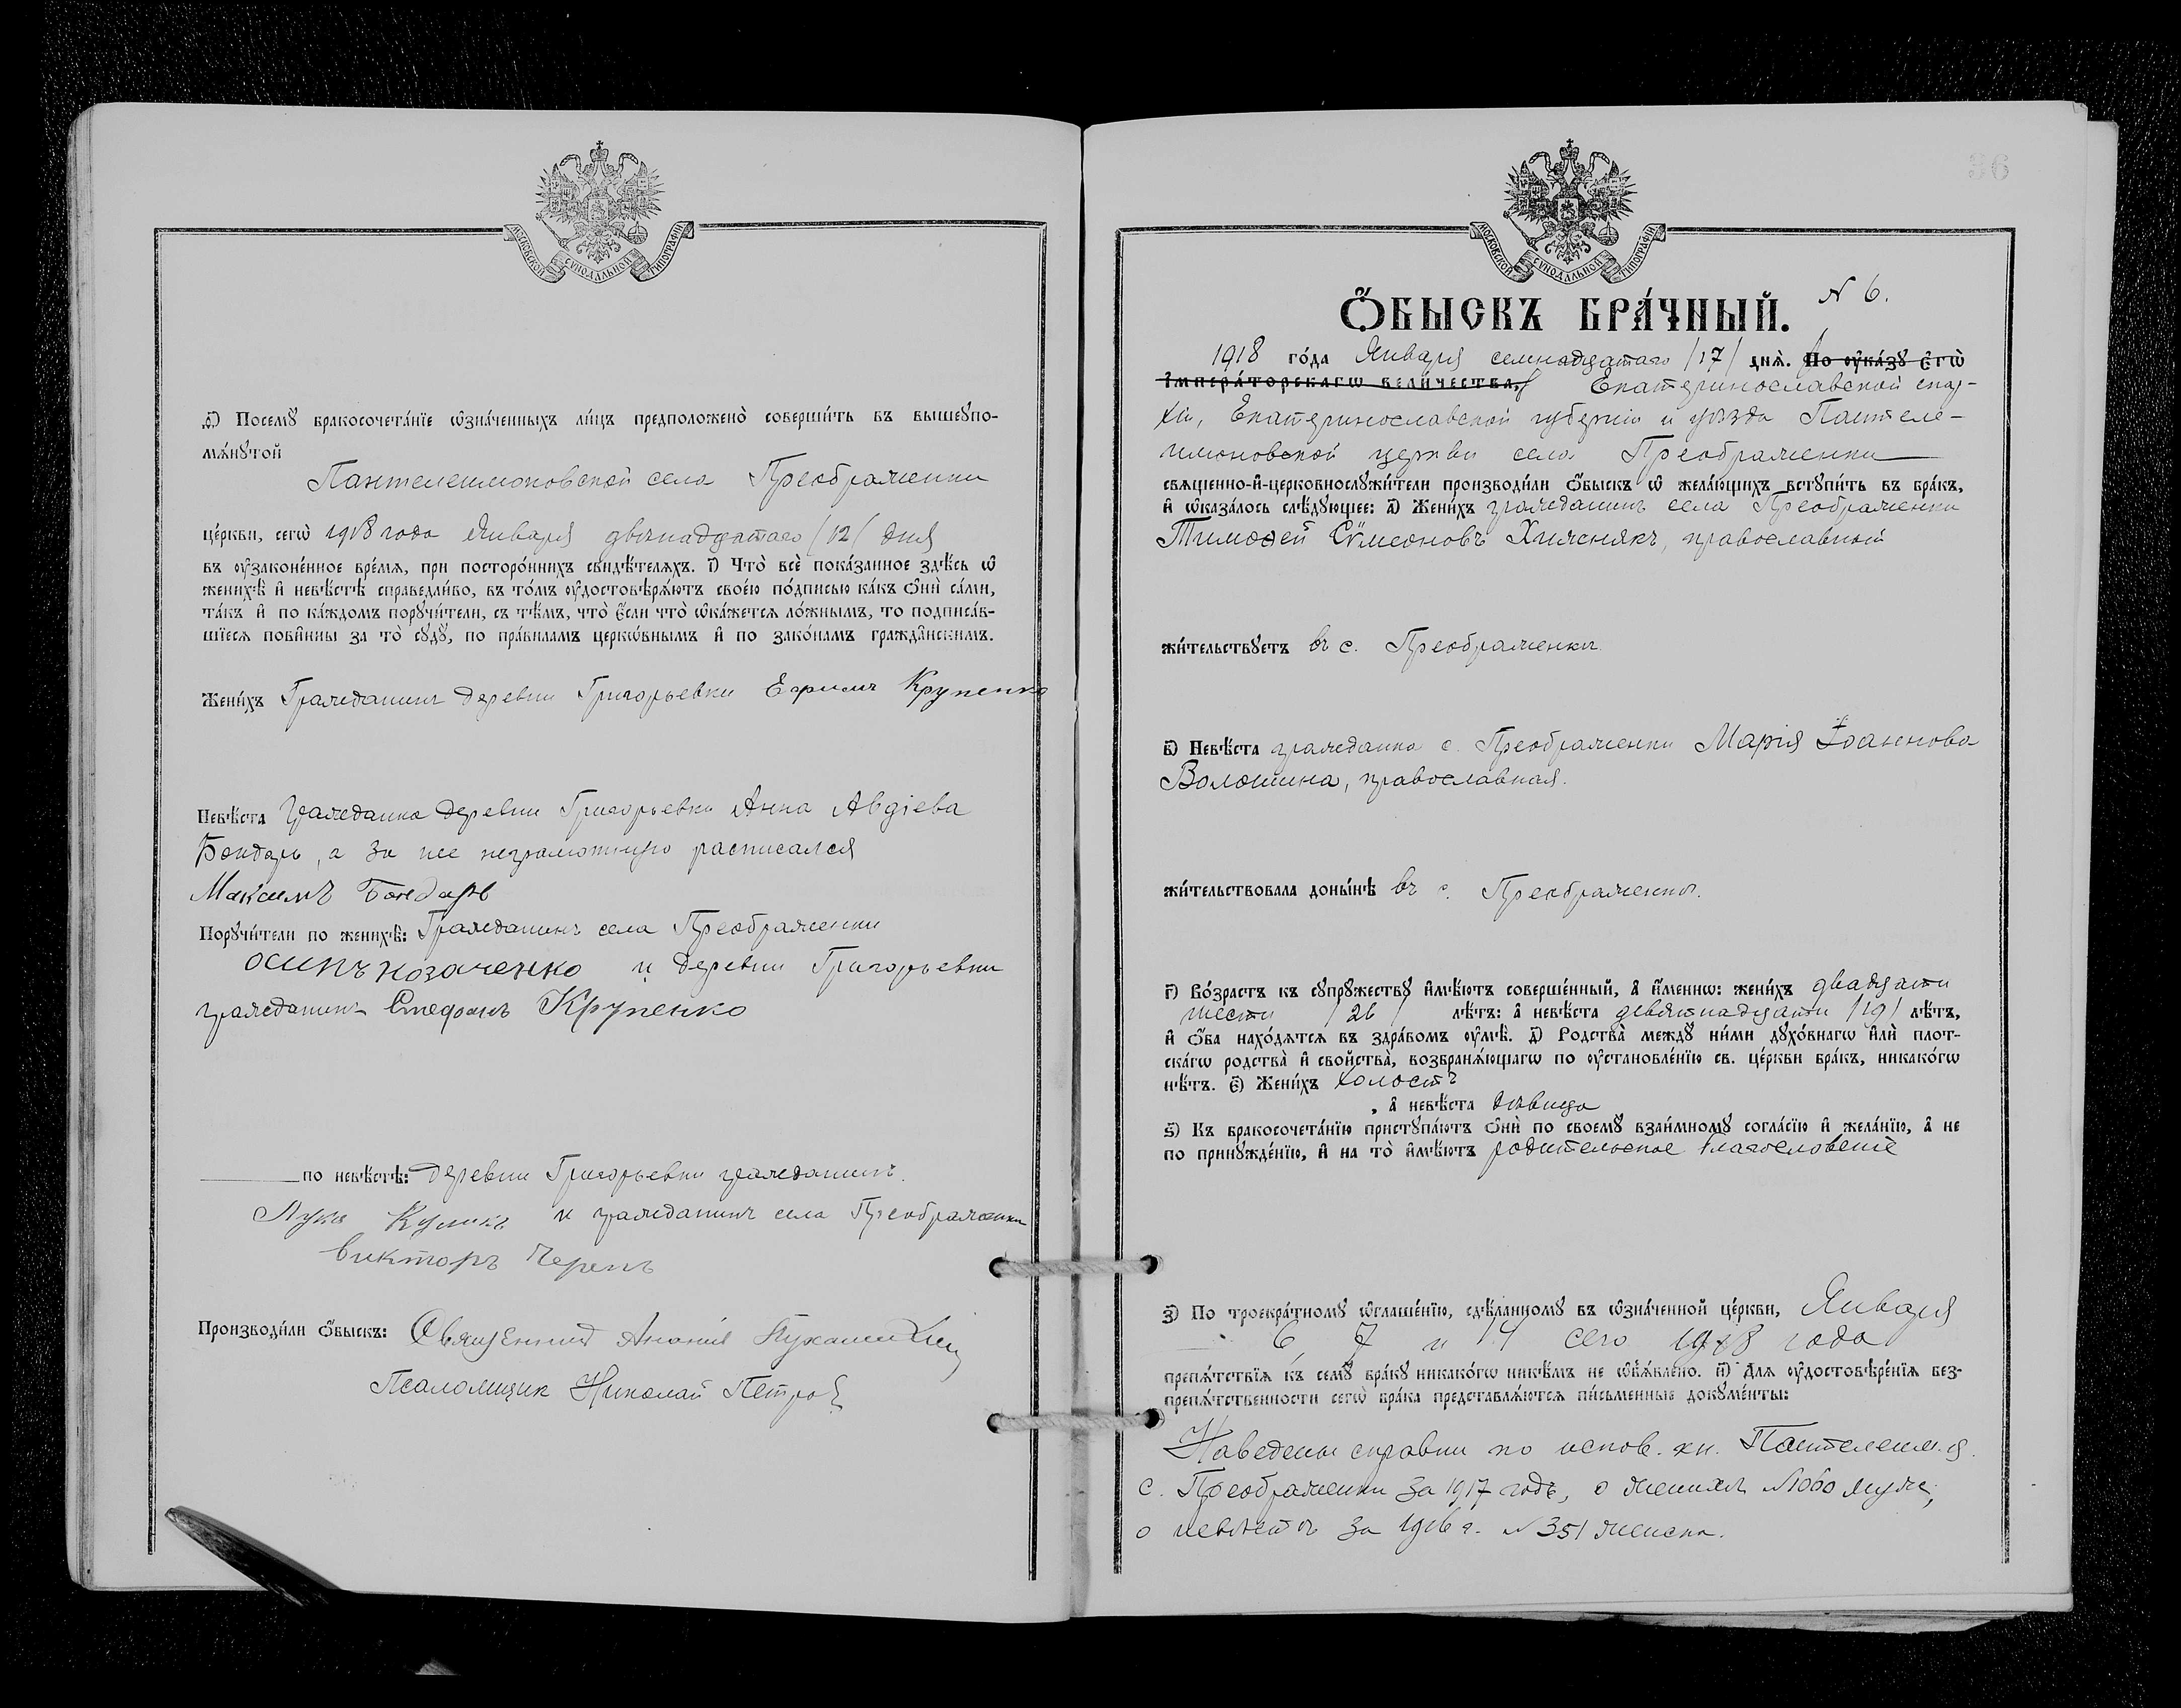 МОСКОВСКОЙ СѴНОДАЛЬНОЙ ТИПОГРАФІИ
ѳ҃) Посемꙋ̀ бракосочета́нїе ѡ҆зна́ченныхъ ли́цъ предположено̀ соверши́ть въ вышеꙋпо-
мѧ́нꙋтой
Пантелеимоновской села Преображенки
це́ркви, сегѡ̀ 1918 года Января двѣнадцатаго /12/ дня
въ ᲂу҆законе́нное вре́мѧ, при посторо́ннихъ свидѣ́телѧхъ. і҃) Что̀ всѐ пока́занное здѣ́сь ѡ҆
женихѣ̀ и҆ невѣ́стѣ справедли́во, въ то́мъ ᲂу҆достовѣрѧ́ютъ свое́ю по́дписью ка́къ ѻ҆нѝ са́ми,
та́къ и҆ по ка́ждомъ порꙋчи́тели, съ тѣ́мъ, что̀ є҆́сли что̀ ѡ҆ка́жетсѧ ло́жнымъ, то подписа́в-
шїесѧ пови́нны за то̀ сꙋдꙋ̀, по пра́виламъ церкѡ́внымъ и҆ по зако́намъ гражда́нскимъ.
Жени́хъ Гражданинъ деревни Григорьевки Ефимъ Крупенко
Невѣ́ста Гражданка деревни Григорьевки Анна Авдіева
Бондарь, а за нее неграмотную расписался
Максимъ Бондарь
Порꙋчи́тели по женихѣ̀: Гражданинъ села Преображенки
осипъ козаченко и деревни Григорьевки
гражданинъ Стефанъ Крупенко
по невѣ́стѣ: деревни Григорьевки гражданинъ
Лука Куликъ и гражданинъ села Преображенки
викторъ Черепъ
Производи́ли ѻ҆́быскъ: Священник Ананія
Псаломщик Николай Петров
36
МОСКОВСКОЙ СѴНОДАЛЬНОЙ ТИПОГРАФІИ
N 6.
Ѻ҆́БЫСКЪ БРА́ЧНЫЙ.
1918 го́да Января семнадцатаго /17/ днѧ̀. По ᲂу҆ка́зꙋ Є҆гѡ̀
І҆мпера́торскагѡ вели́чества, Екатеринославской епар-
хіи, Екатеринославской губерніи и уѣзда Пантеле-
имоновской церкви села Преображенки
свѧщенно-и҆-церковнослꙋжи́тели производи́ли ѻ҆́быскъ ѡ҆ жела́ющихъ встꙋпи́ть въ бра́къ,
и҆ ѡ҆каза́лось слѣ́дꙋющее: а҃) Жени́хъ гражданинъ села Преображенки
Тимоѳей Сѵмеоновъ Хижнякъ, православный
жи́тельствꙋетъ въ с. Преображенкѣ.
в҃) Невѣ́ста гражданка с. Преображенки Марія Іоаннова
Волошина, православная.
жи́тельствовала доны́нѣ въ с. Преображенкѣ.
г҃) Во́зрастъ къ сꙋпрꙋ́жествꙋ и҆мѣ́ютъ соверше́нный, а҆ и҆́меннѡ: жени́хъ двадцати
шести /26/ лѣ́тъ: а҆ невѣ́ста девятнадцати /19/ лѣ́тъ,
и҆ ѻ҆́ба нахо́дѧтсѧ въ здра́вомъ ᲂу҆мѣ̀. д҃) Родства̀ междꙋ̀ ни́ми дꙋхо́внагѡ и҆лѝ плот-
ска́гѡ родства̀ и҆ свойства̀, возбранѧ́ющагѡ по ᲂу҆становле́нїю св. це́ркви бра́къ, никако́гѡ
нѣ́тъ. є҃) Жени́хъ холостъ
, а҆ невѣ́ста дѣвица
ѕ҃) Къ бракосочета́нїю пристꙋпа́ютъ ѻ҆нѝ по своемꙋ̀ взаи́мномꙋ согла́сїю и҆ жела́нїю, а҆ не
по принꙋжде́нїю, и҆ на то̀ и҆мѣ́ютъ родительское благословеніе
з҃) По троекра́тномꙋ ѡ҆глаше́нїю, сдѣ́ланномꙋ въ ѡ҆зна́ченной це́ркви, Января
6, 7 и 14 сего 1918 года
препѧ́тствїѧ къ семꙋ̀ бра́кꙋ никако́гѡ никѣ́мъ не ѡ҆б̾ѧ́влено. и҃) Для ᲂу҆достовѣре́нїѧ без-
препѧ́тственности сегѡ̀ бра́ка представлѧ́ютсѧ пи́сьменные докꙋме́нты:
Наведены справки по испов. кн. Пантелеим. ц.
с. Преображенки за 1917 годъ, о женихѣ N1060 мужс.;
о невѣстѣ за 1916 г. N 351 женска.